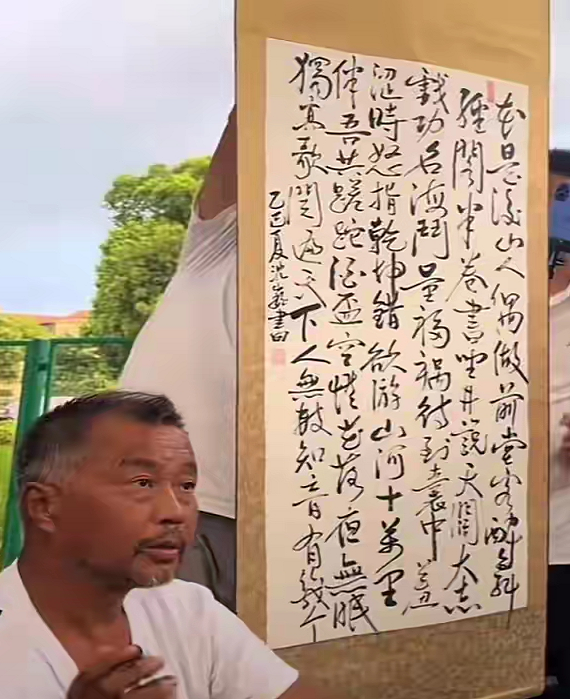 本是後山人偶做前堂客醉舞
經閣半卷書坐井說天闊大志
戲功名海鬥量福禍待到囊中羞
澀時怒指乾坤錯欲游山河十萬里
伴吾共蹉跎酒盃空花落夜無眠
獨高歌閱遍天下人無數知音有幾个
乙巳夏沈巍書